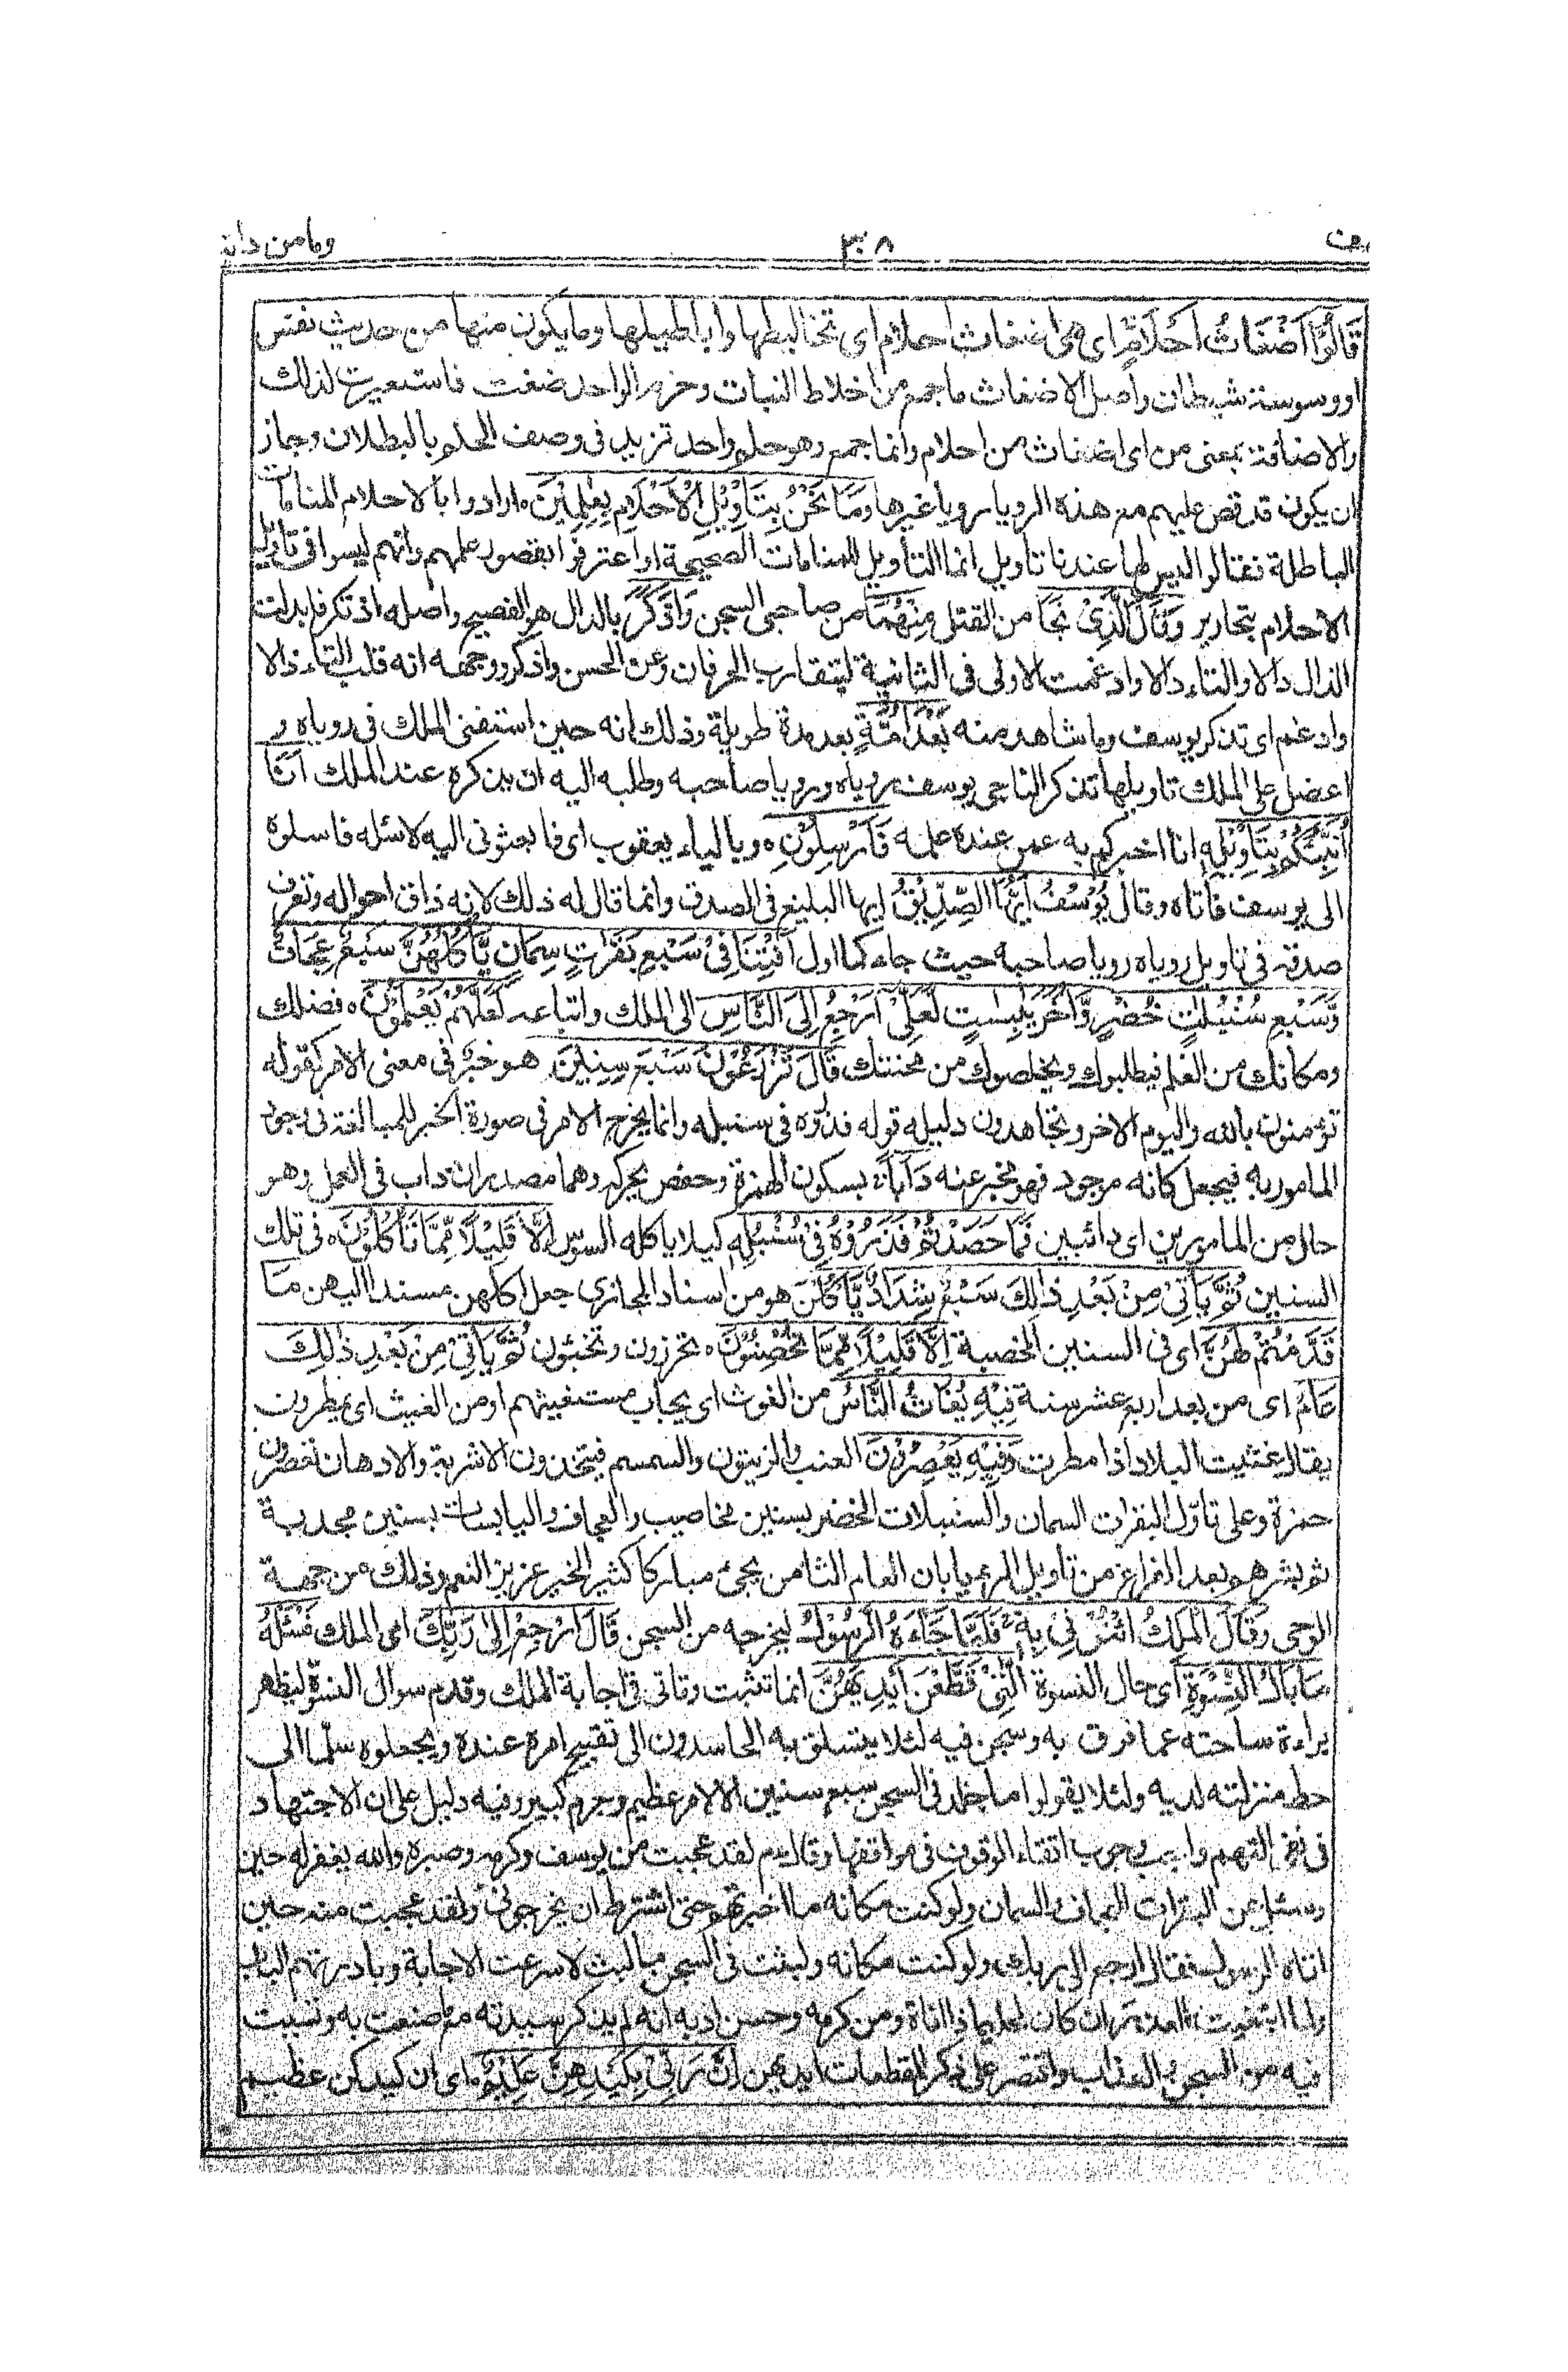 وما من دابة ٣٠٨ ـف
قَالُوْا اَضْغَاثُ اَحْلَامٍ اى هى اضغاث احلام اى تخاليطها واباطيلها وما يكون منها من حديث نفس
او وسوسة شيطان واصل الاضغاث ما جمع من اخلاط النبات وحزم الواحد ضغث فاستعيرت لذلك
والاضافة بمعنى من اى اضغاث من احلام وانما جمع وهو حلم واحد تزيد فى وصف الحلم بالبطلان وجاز
ان يكون قد قص عليهم مع هذه الرويا رويا غيرها وَمَا نَحْنُ بِتَاْوِيْلِ الْاَحْلَامِ بِعٰلِمِيْنَ ارادوا بالاحلام المنامات
الباطلة فقالوا ليس لها عندنا تاويل انما التاويل للمنامات الصحيحة او اعترفوا بقصور علمهم وانهم ليسوا فى تاويل
الاحلام بتحارير وَقَالَ الَّذِىْ نَجَا من القتل مِنْهُمَا من صاحبى السجن وَادَّكَرَ بالدال هو الفصيح واصله اذتكر فابدلت
الذال دالا والتاء دالا وادغمت الاولى فى الثانية لتقارب الحرفان وعن الحسن واذكر ووجهه انه قلب التاء ذالا
وادغم اى تذكر يوسف وما شاهد منه بَعْدَ اُمَّةٍ بعد مدة طويلة وذلك انه حين استفتى الملك فى روياه و
اعضل على الملك تاويلها تذكر الناجى يوسف روياه ورويا صاحبه وطلبه اليه ان يذكره عند الملك اَنَا
اُنَبِّئُكُمْ بِتَاْوِيْلِهٖ انا اخبركم به عمن عنده علمه فَاَرْسِلُوْنِ ه وبالياء يعقوب اى فابعثونى اليه لاسئله فارسلوه
الى يوسف فاتاه وقال يُوْسُفُ اَيُّهَا الصِّدِّيْقُ ايها البليغ فى الصدق وانما قال له ذلك لانه ذاق احواله وتعرف
صدقه فى تاويل روياه رويا صاحبه حيث جاء كما اول اَفْتِنَا فِىْ سَبْعِ بَقَرٰتٍ سِمَانٍ يَّاْكُلُهُنَّ سَبْعٌ عِجَافٌ
وَّسَبْعِ سُنْبُلٰتٍ خُضْرٍ وَّاُخَرَ يٰبِسٰتٍ لَعَلِّىْ اَرْجِعُ اِلَى النَّاسِ الى الملك واتباعه لَعَلَّهُمْ يَعْلَمُوْنَ ه فضلك
ومكانك من العلم فيطلبوك ويخلصوك من محنتك قَالَ تَزْرَعُوْنَ سَبْعَ سِنِيْنَ هو خبر فى معنى الامر كقوله
تؤمنون بالله واليوم الاخر وتجاهدون دليله قوله فذروه فى سنبله وانما يخرج الامر فى صورة الخبر للمبالغة فى وجود
المامور به فيجعل كانه موجود فهو يخبر عنه دَاَبًا بسكون الهمزة وحفص يحركه وهما مصدران داب فى العمل وهو
حال من المامورين اى دائبين فَمَا حَصَدْتُّمْ فَذَرُوْهُ فِىْ سُنْبُلِهٖ كيلا ياكله السوس اِلَّا قَلِيْلًا مِّمَّا تَاْكُلُوْنَ ه فى تلك
السنين ثُمَّ يَاْتِىْ مِنْ بَعْدِ ذٰلِكَ سَبْعٌ شِدَادٌ يَّاْكُلْنَ هو من اسناد المجازى جعل اكلهن مسندا اليهن مَا
قَدَّمْتُمْ لَهُنَّ اى فى السنين الخصبة اِلَّا قَلِيْلًا مِّمَّا تُحْصِنُوْنَ ه تحرزون وتخبئون ثُمَّ يَاْتِىْ مِنْ بَعْدِ ذٰلِكَ
عَامٌ اى من بعد اربع عشر سنة فِيْهِ يُغَاثُ النَّاسُ من الغوث اى يجاب مستغيثهم او من الغيث اى يمطرون
يقال غثيت البلاد اذا مطرت وَفِيْهِ يَعْصِرُوْنَ العنب والزيتون والسمسم فيتخذون الاشربة والادهان تعصرون
حمزة وعلى تاول البقرات السمان والسنبلات الخضر بسنين مخاصيب والعجاف واليابسات بسنين مجدبة
ثم بشرهم بعد الفراغ من تاويل الرويا بان العام الثامن يجئ مباركا كثير الخير عزيز النعم وذلك من جهة
الوحى وَقَالَ الْمَلِكُ ائْتُوْنِىْ بِهٖ فَلَمَّا جَاءَهُ الرَّسُوْلُ ليخرجه من السجن قَالَ ارْجِعْ اِلٰى رَبِّكَ اى الملك فَسْئَلْهُ
مَا بَالُ النِّسْوَةِ اى حال النسوة الّٰتِىْ قَطَّعْنَ اَيْدِيَهُنَّ انما تثبت وتانى فى اجابة الملك وقدم سوال النسوة ليظهر
براءة ساحته عما قرف به وسجن فيه لئلا يتسلق به الحاسدون الى تقبيح امره عنده ويجعلوه سلما الى
حط منزلته لديه ولئلا يقولوا ما خلد فى السجن سبع سنين الا لامر عظيم وجرم كبير وفيه دليل على ان الاجتهاد
فى نفى التهم واجب وجوب اتقاء الوقوف فى مواقفها وقال عم لقد عجبت من يوسف وكرمه وصبره والله يغفر له حين
سئل عن البقرات العجاف والسمان ولو كنت مكانه ما اخبرتهم حتى اشترط ان يخرجونى ولقد عجبت منه حين
اتاه الرسول فقال ارجع الى ربك ولو كنت مكانه ولبثت فى السجن ما لبث لاسرعت الاجابة وبادرتهم الباب
ولما ابتغيت العذر ان كان لحليما ذا اناة ومن كرمه وحسن ادبه انه لم يذكر سيدته مع ما صنعت به وتسببت
فيه من السجن والعذاب واقتصر على ذكر المقطعات ايديهن اِنَّ رَبِّىْ بِكَيْدِهِنَّ عَلِيْمٌ ه اى ان كيدكن عظيم